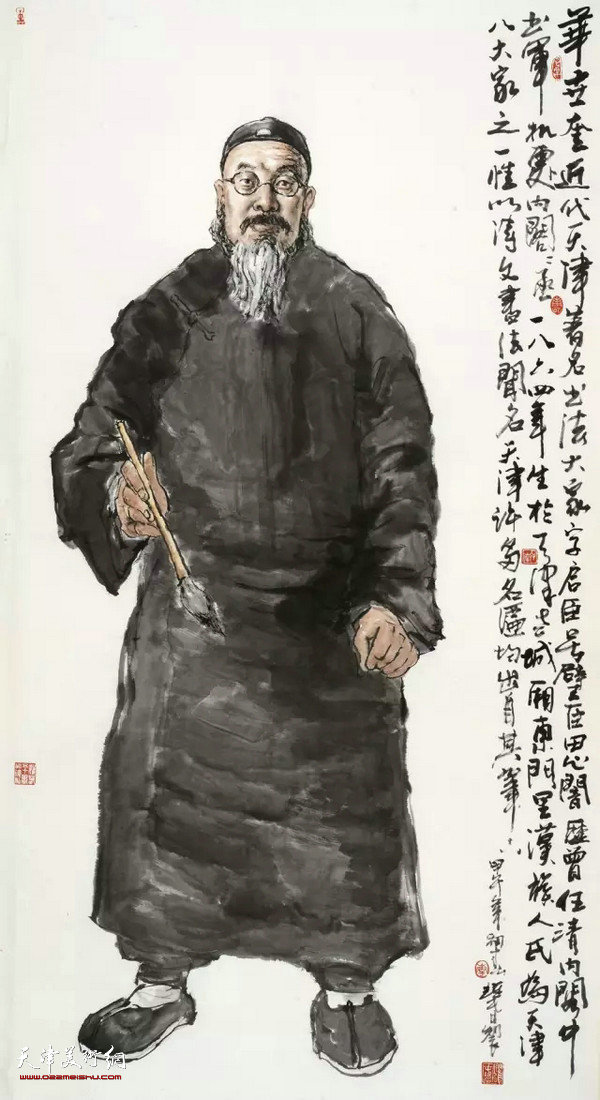 華世奎近代天津著名书法大家字启臣号璧臣思闇歷曾任清内閣中
书軍机處内閣丞一八六四年生於天津老城厢東門里漢族人氏為天津
八大家之一性以诗文書法聞名天津許多名匾均出自其筆下
甲午年
天津美术网
www.022meishu.com